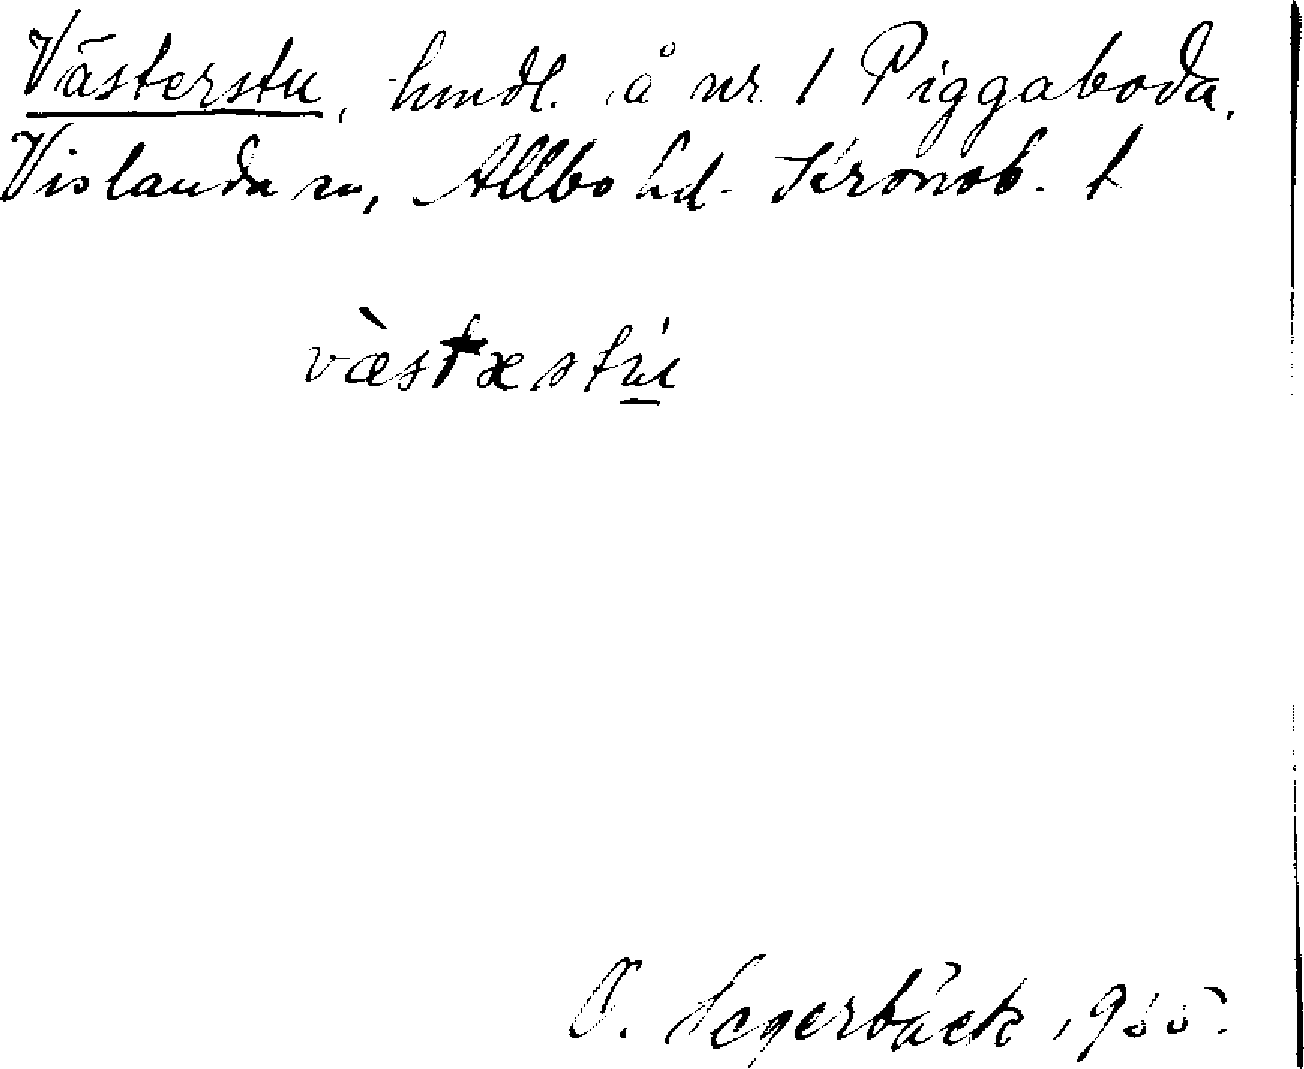 Västerstu, hmdl. å nr 1 Piggaboda,
Vislanda sn, Allbo hd. Kronob. l
væ̀stæstú̲
O. Segerbäck 1935.